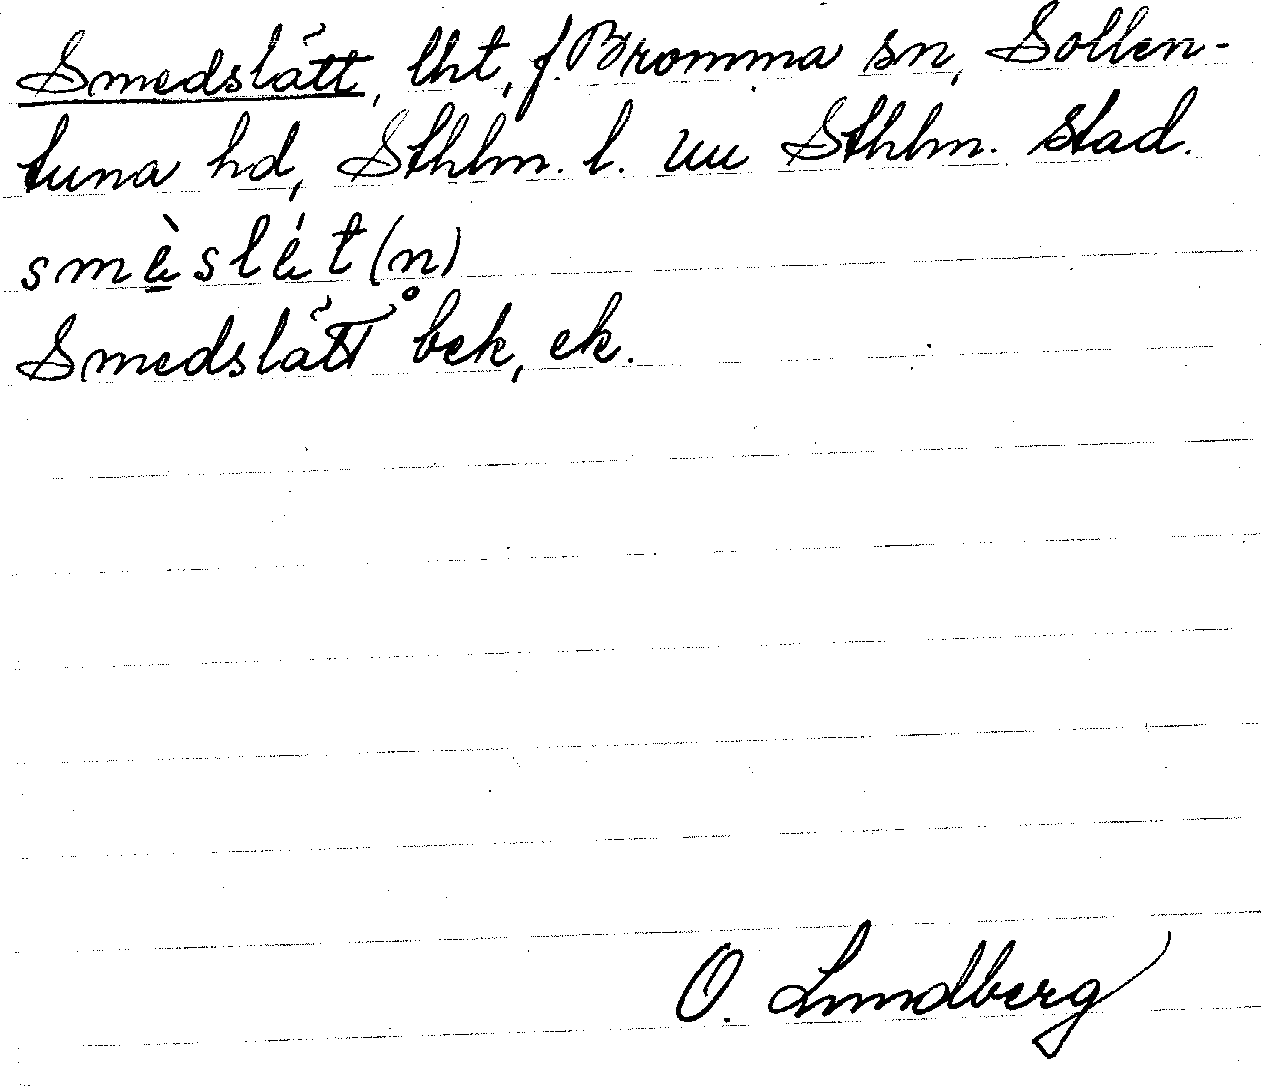 Smedslätt, lht, f. Bromma sn, Sollen-
tuna hd, Sthlm. l. nu Sthlm. stad.
smè̱slét(n)
Smedslätt bek, ek.
O. Lundberg